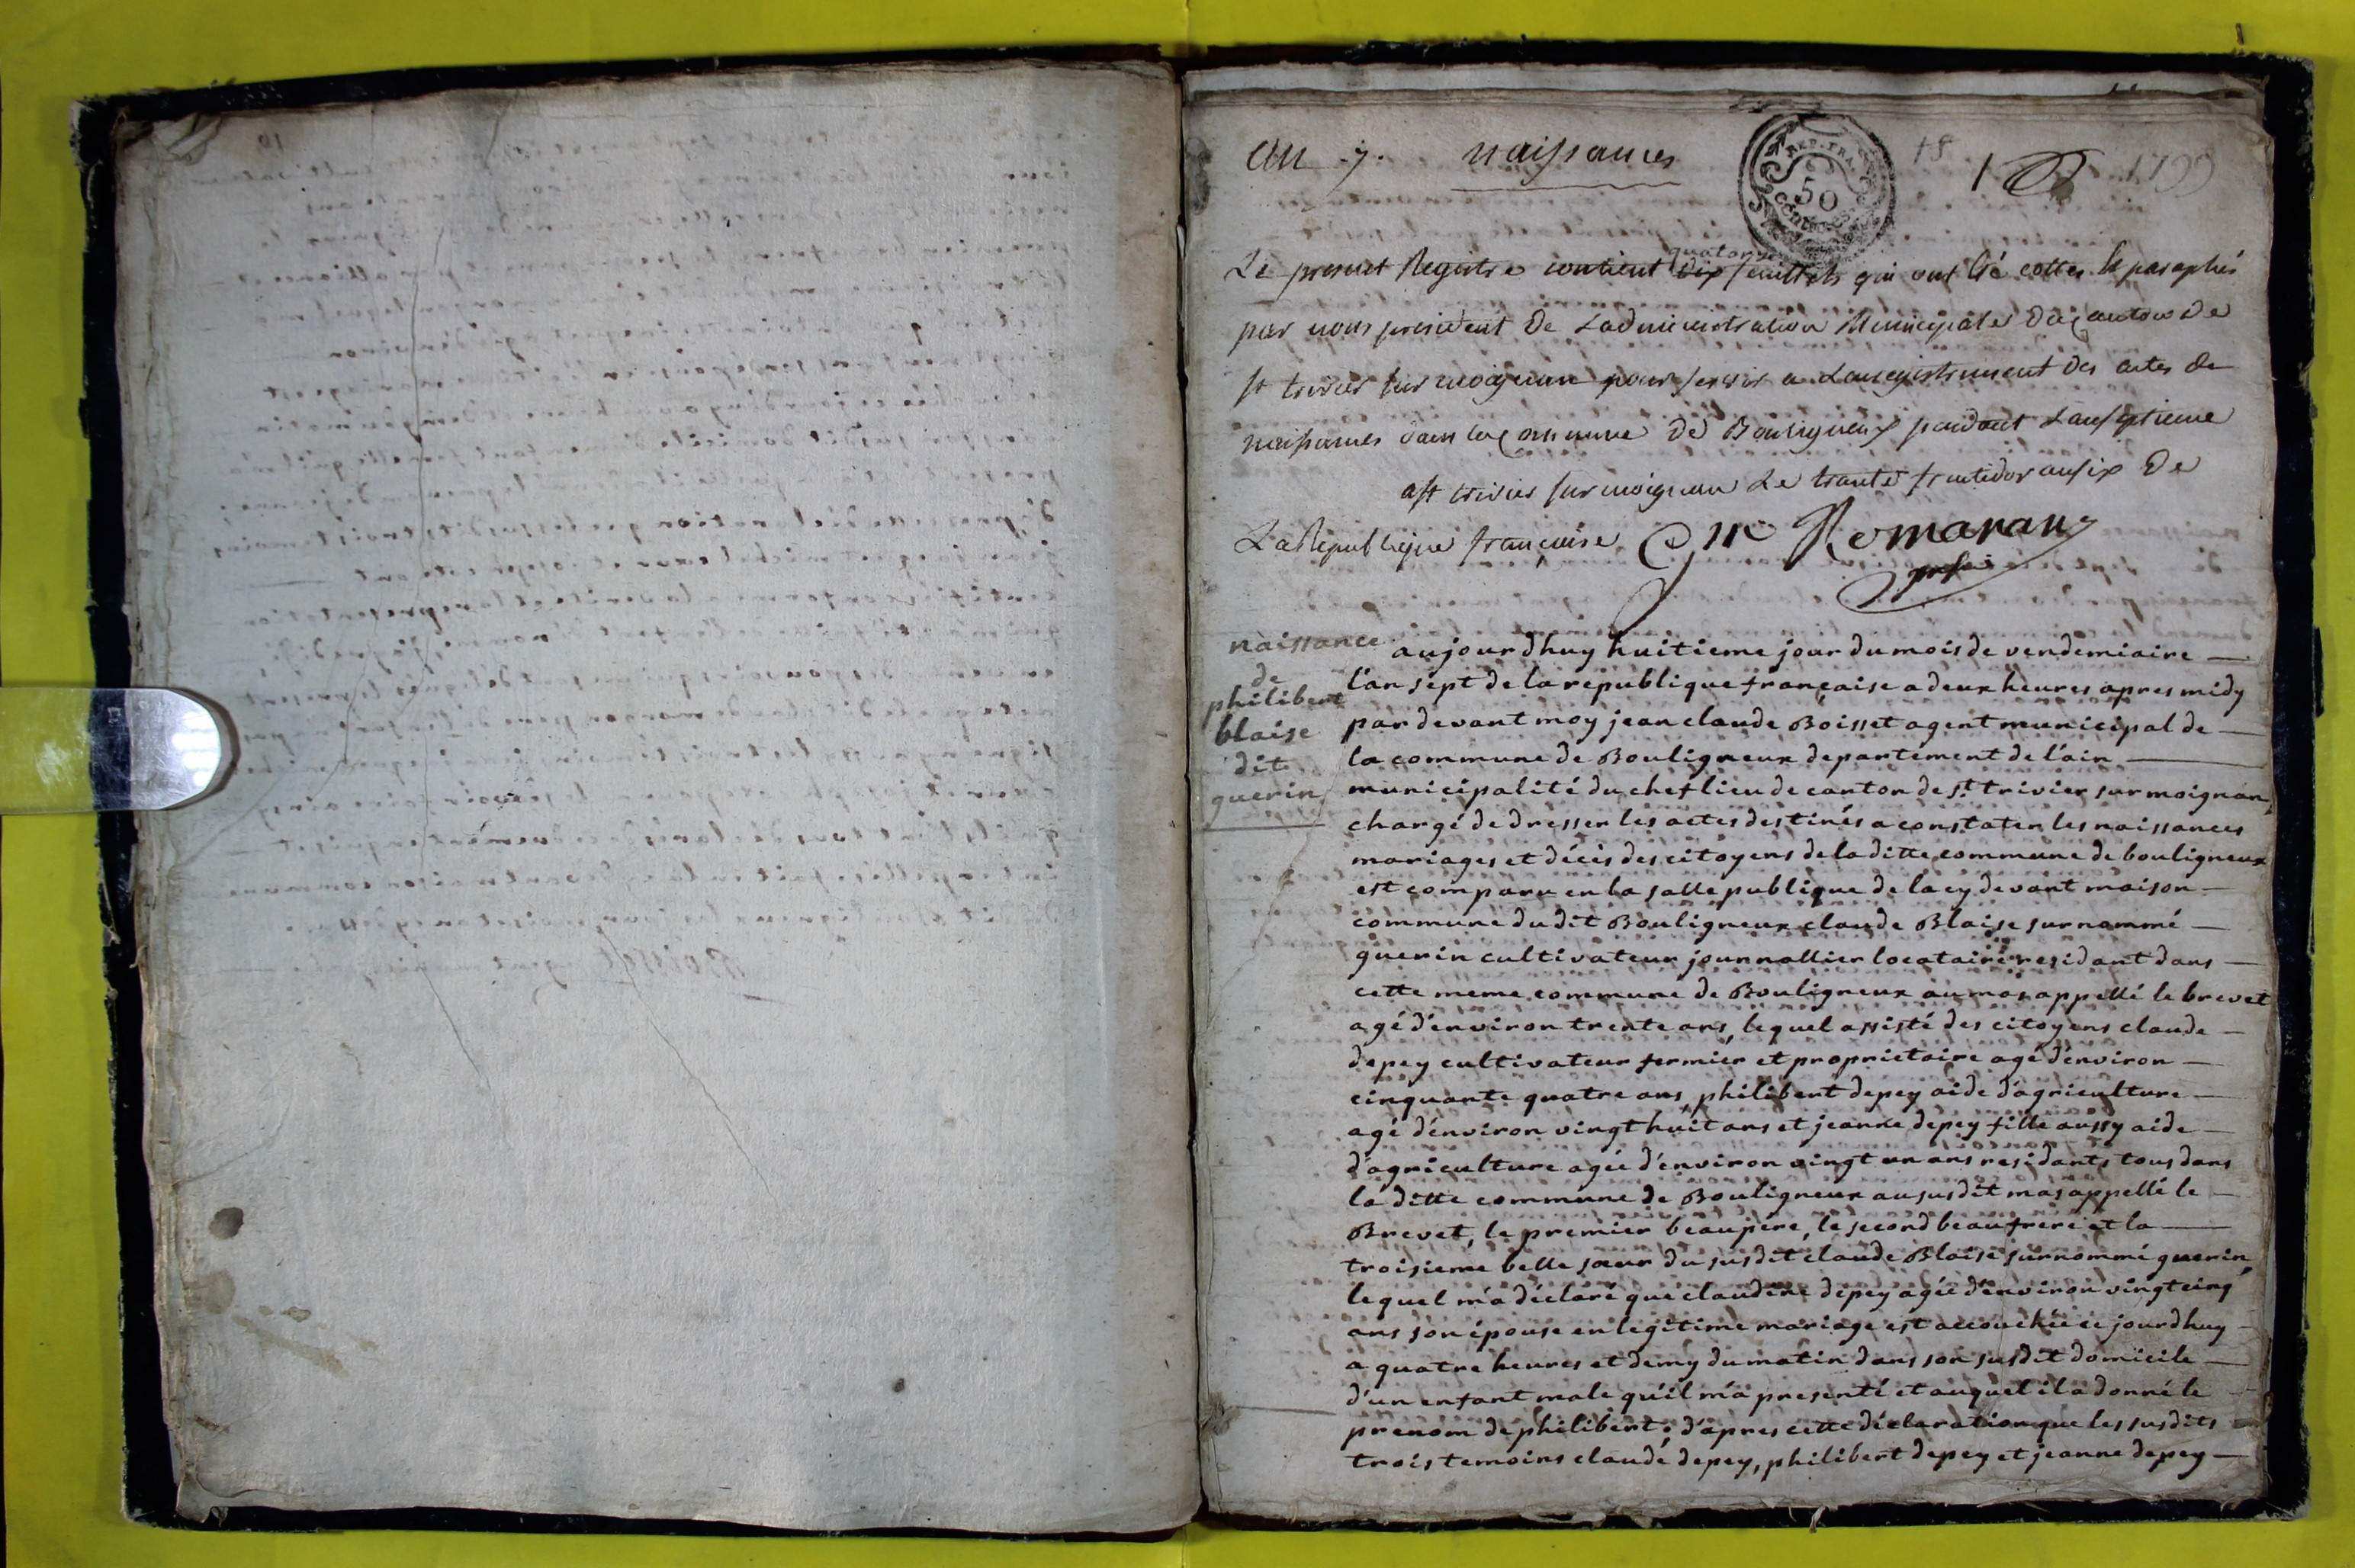 an 7. naissances
REP. FRA.
50
CENT.
18
1
1799
quatorze
Le present Registre contient dix feuillets qui ont été cottes & paraphés
par nous president de Ladministration Municipale du Canton de
st trivier sur moignan pour servir a Lenregistrement des actes de
naissances dans la Commune de Bouligneux pendant Lan septieme
a st trivier sur moignan Le trante fructidor an six de
La Republique française
Romaran
presi
naissance
de
philibert
blaise
dit
guerin
aujourdhuy huitieme jour du mois de vendemiaire
l'an sept de la republique française a deux heures apres midy
par devant moy jean claude Boisset agent municipal de
la commune de Bouligneux departement de l'ain
municipalité du chef lieu de canton de st. trivier sur moignan,
chargé de dresser les actes destinés a constater les naissances
mariages et décès des citoyens de la ditte commune de bouligneux
est comparu en la salle publique de la cy devant maison
commune du dit Bouligneux claude Blaise surnommé
guerin cultivateur journallier locataire residant dans
cette meme commune de Bouligneux au mas appellé le brevet
agé d'environ trente ans, lequel assisté des citoyens claude
depey cultivateur fermier et proprietaire agé d'environ
cinquante quatre ans, philibert depey aide d'agriculture
agé d'environ vingt huit ans et jeanne depey fille aussy aide
d'agriculture agée d'environ vingt un ans residants tous dans
la ditte commune de Bouligneux au susdit mas appellé le
Brevet, le premier beaupére, le second beaufrere et la
troisieme belle sœur du susdit claude Blaise surnommé guerin,
lequel m'a déclaré que claudine depey agée d'environ vingt cinq
ans son épouse en legitime mariage est accouchée ce jourdhuy
a quatre heures et demy du matin dans son susdit domicile
d'un enfant male qu'il m'a presenté et auquel il a donné le
prenom de philibert; d'apres cette déclaration que les susdits
trois temoins claude depey, philibert depey et jeanne depey